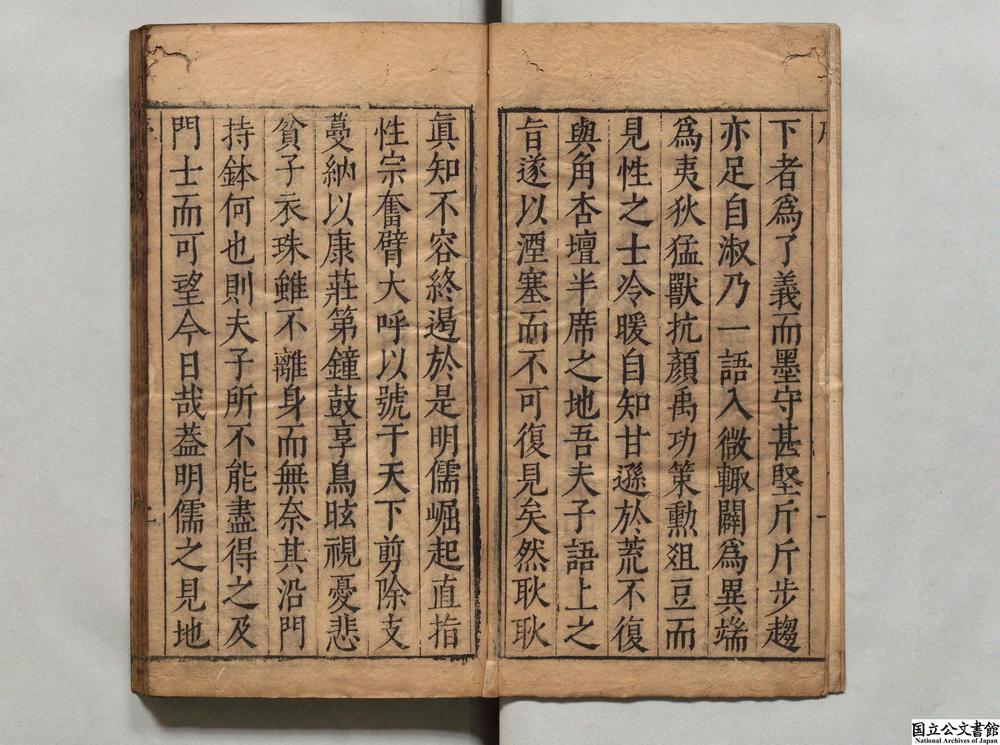 下者爲了義而墨守甚堅斤斤步趨
亦足自淑乃一語入微輙闢爲異端
爲夷狄猛獸抗顏禹功策勲爼豆而
見性之士冷暖自知甘遜於荒不復
與角杏壇半席之地吾夫子語上之
旨遂以湮塞而不可復見矣然耿耿
眞知不容終遏於是明儒崛起直指
性宗奮臂大呼以號于天下剪除支
蔓納以康莊第鐘鼓享鳥眩視憂悲
貧子衣珠雖不離身而無奈其沿門
持鉢何也則夫子所不能盡得之及
門士而可望今日哉葢明儒之見地
国立公文書館
National Archives of Japan